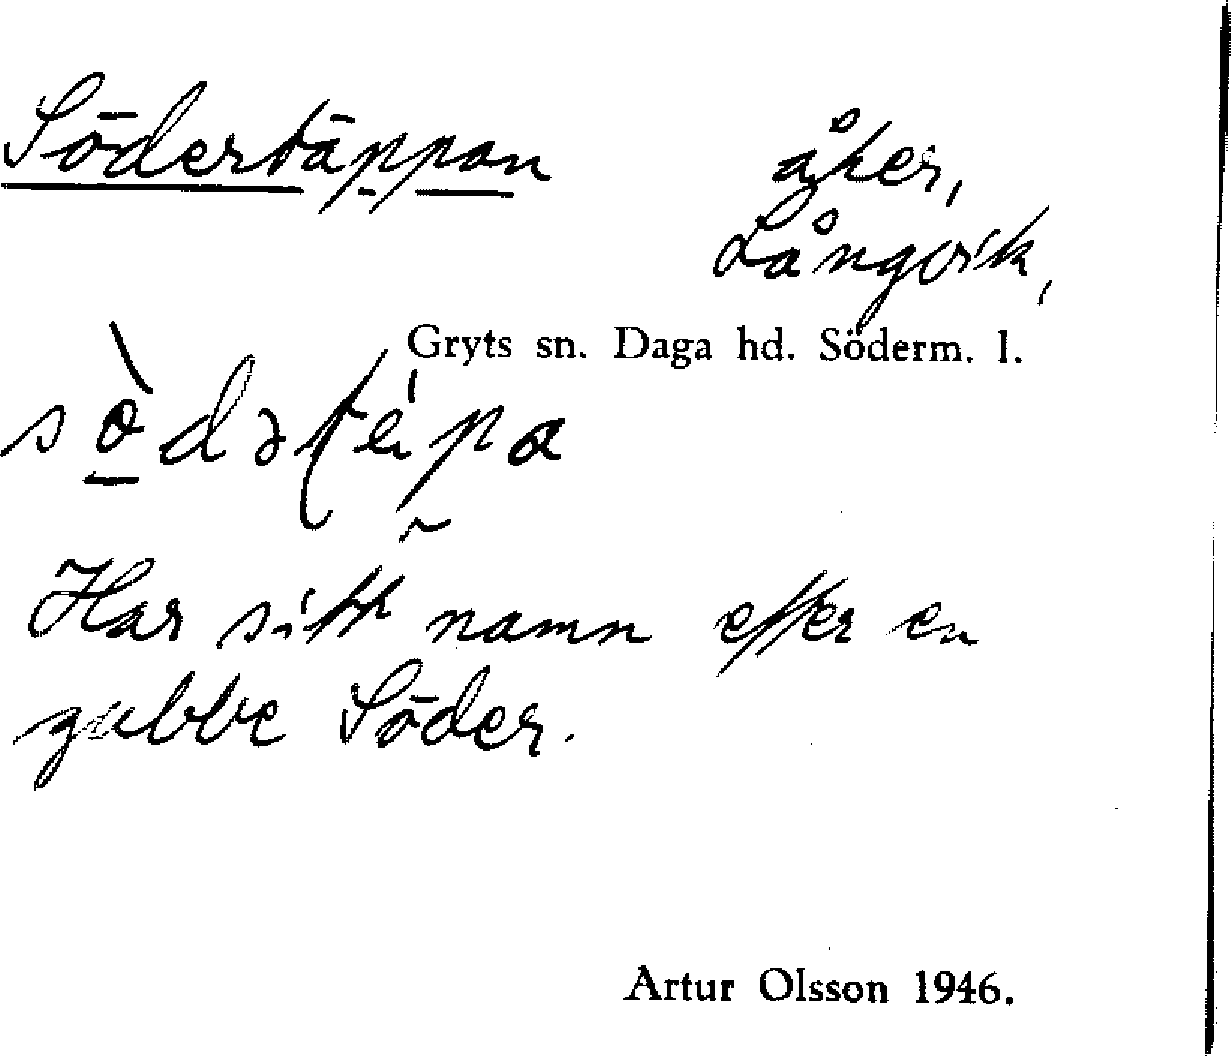 Södertäppan åker,
Långvik,
Gryts sn. Daga hd. Söderm. l.
Har sitt namn efter en
gubbe Söder.
Artur Olsson 1946.